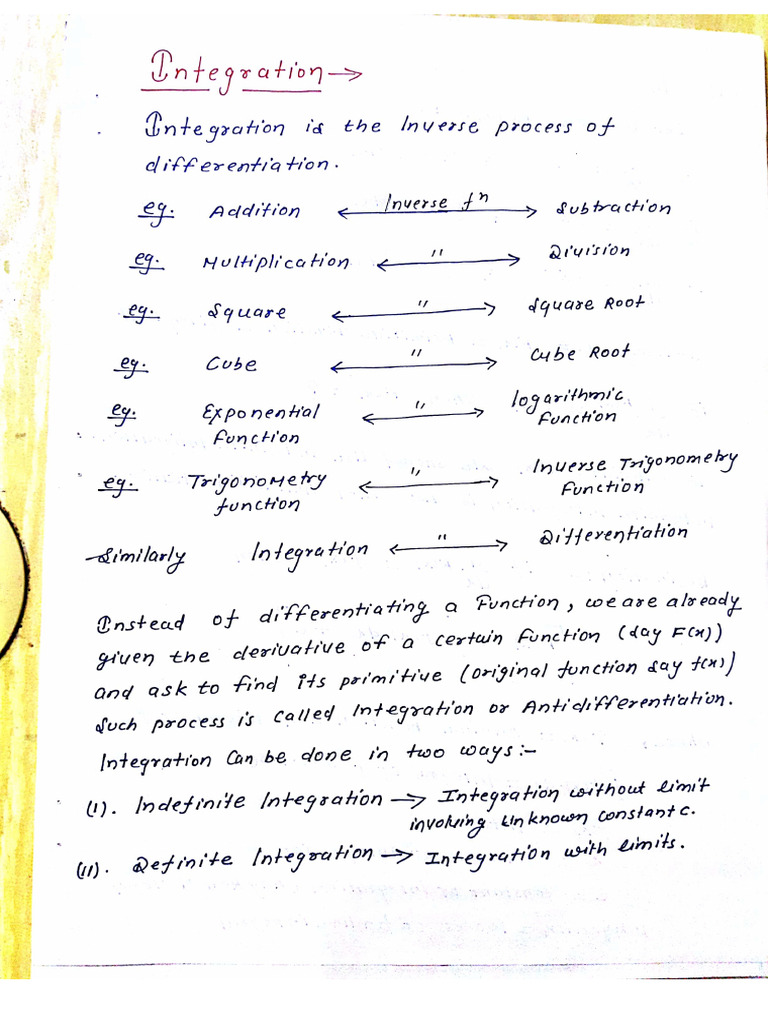 Integration →
Integration is the Inverse process of
differentiation.
eg. Addition ←Inverse fⁿ→ Subtraction
eg. Multiplication ←"→ Division
eg. Square ←"→ Square Root
eg. Cube ←"→ Cube Root
eg. Exponential function ←"→ logarithmic function
eg. Trigonometry function ←"→ Inverse Trigonometry function
Similarly Integration ←"→ Differentiation
Instead of differentiating a Function, we are already
given the derivative of a certain function (say F(x))
and ask to find its primitive (original function say f(x))
Such process is called Integration or Antidifferentiation.
Integration Can be done in two ways:-
(I). Indefinite Integration → Integration without limit
involving unknown constant c.
(II). Definite Integration → Integration with limits.